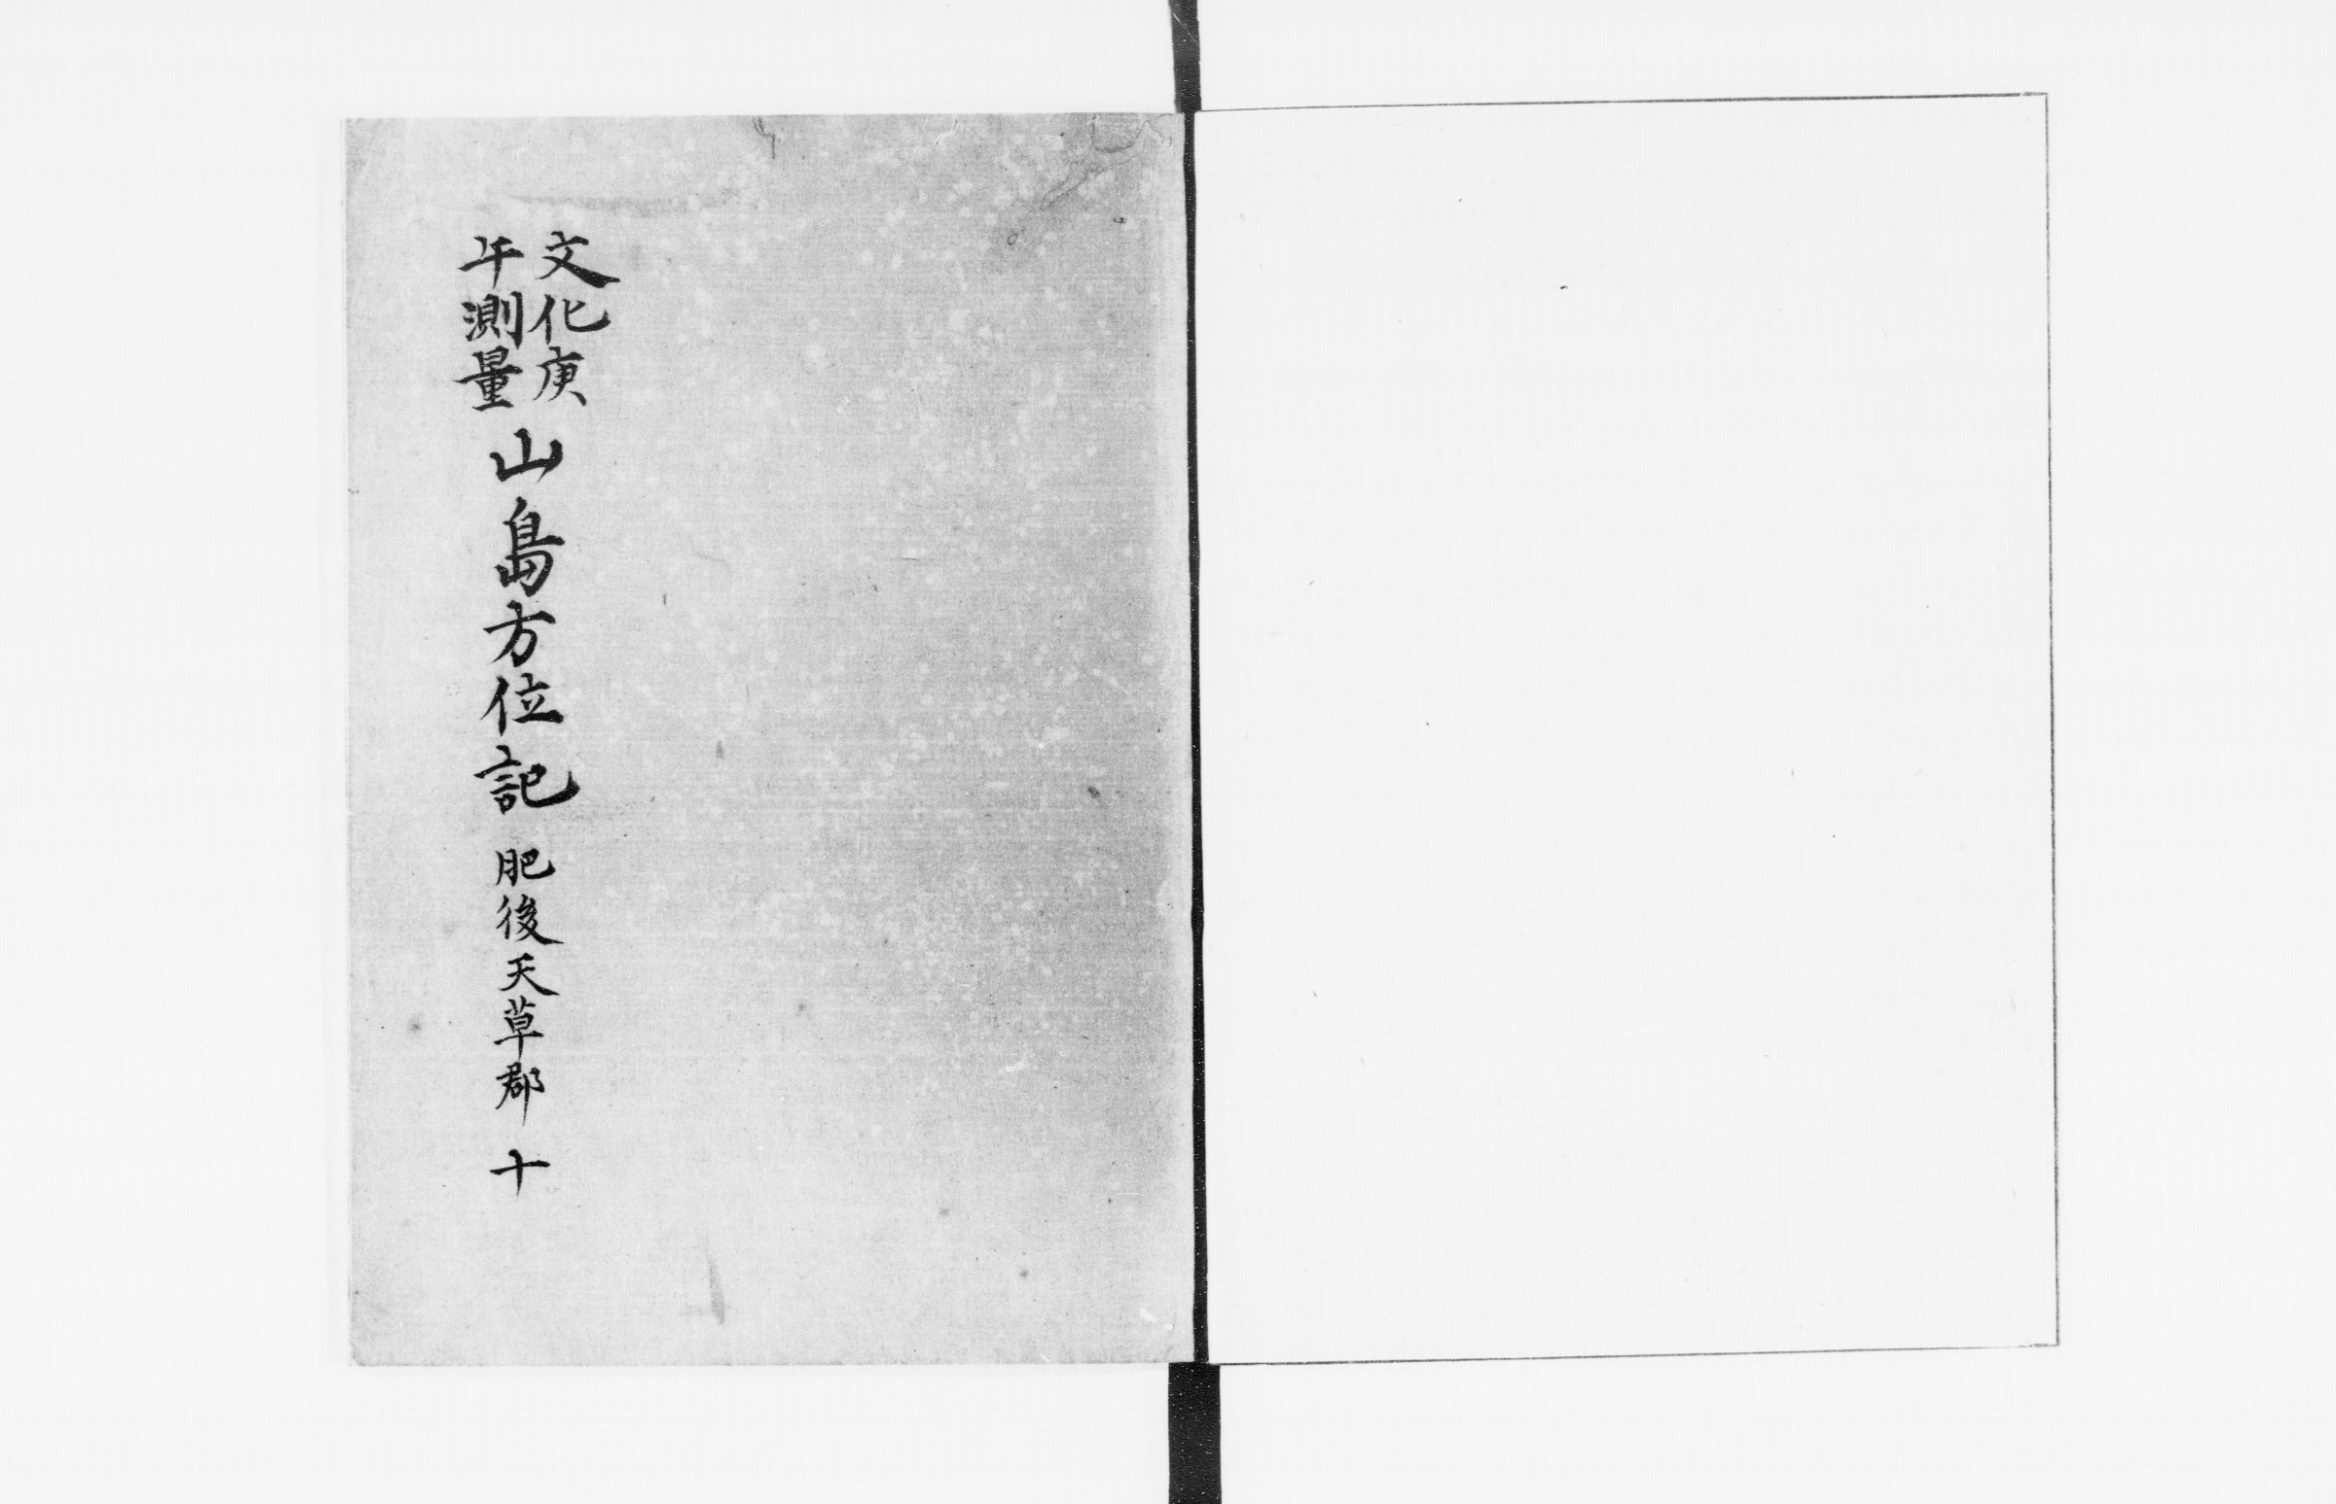 文化庚
午測量
山島方位記 肥後天草郡 十